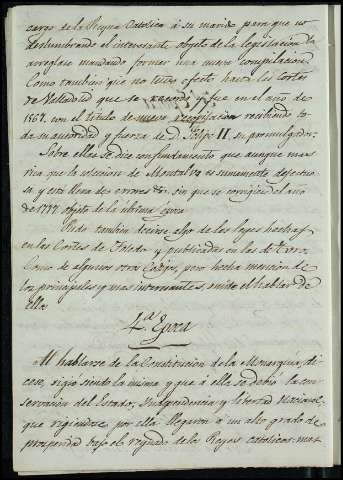 cargo de la Reyna Catolica á su marido para que no
deslumbrando el interesante objeto de la legislacion la
arreglase mandando formar una nueva compilacion
Como tambien que no tuvo efecto hasta las Cortes
de Valladolid que se y fue en el año de
1567. con el titulo de nueva recopilacion recibiendo to-
da su autoridad y fuerza de D. Felipe II. su promulgador.
Sobre ella se dice con fundamento que aunque mas
rica que la coleccion de Montalvo es sumamente defectuo-
sa y está llena de errores &c. sin que se corrigiese el año
de 1777. objeto de la ultima Epoca
Pudo tambien decirse algo de las leyes hechas
en las Cortes de Toledo y publicadas en las de Toro.
Como de algunos otros Codigos, pero hecha mencion de
los principales y mas interesantes, omito el hablar de
ella
4.ª Epoca
Al hablarse de la Constitucion de la Monarquia, di-
cese, rigió siendo la misma y que á ella se debio la con-
servacion del Estado, Independencia y libertad Nacional
que rigiendose por ella llegaron á un alto grado de
prosperidad bajo el reynado de los Reyes catolicos mas